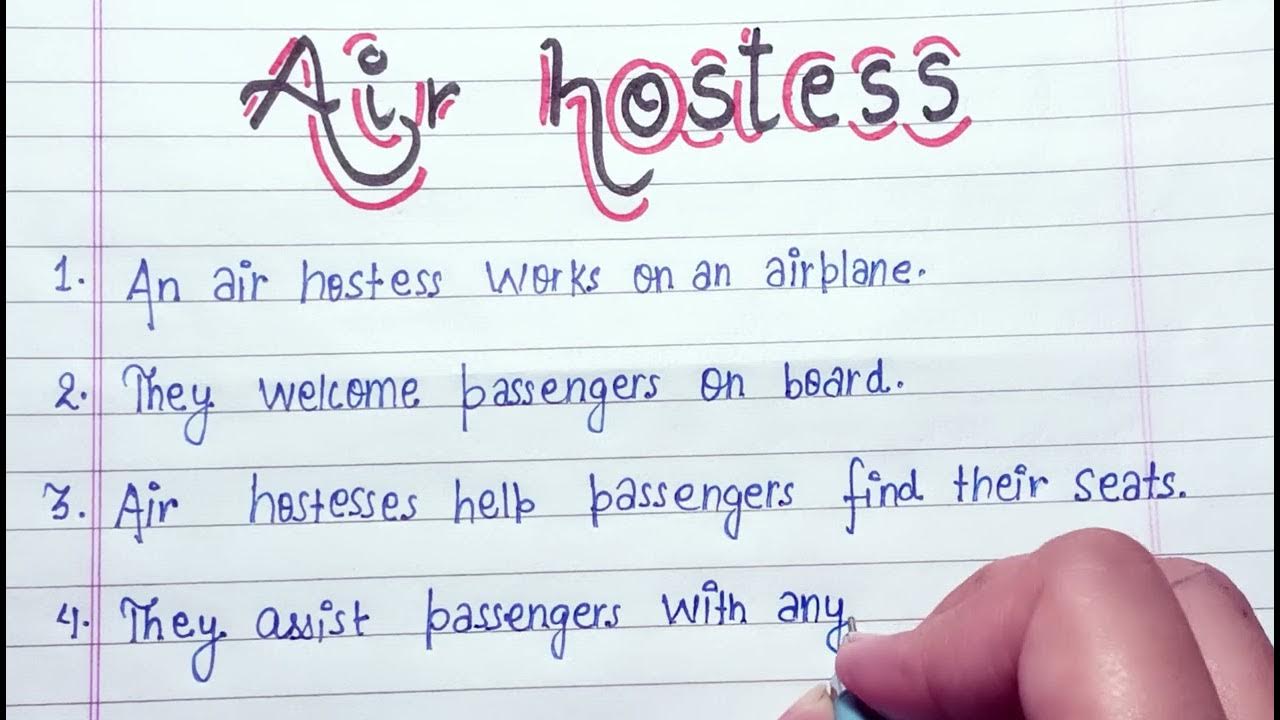 Air hostess
1. An air hostess works on an airplane.
2. They welcome passengers on board.
3. Air hostesses help passengers find their seats.
4. They assist passengers with any